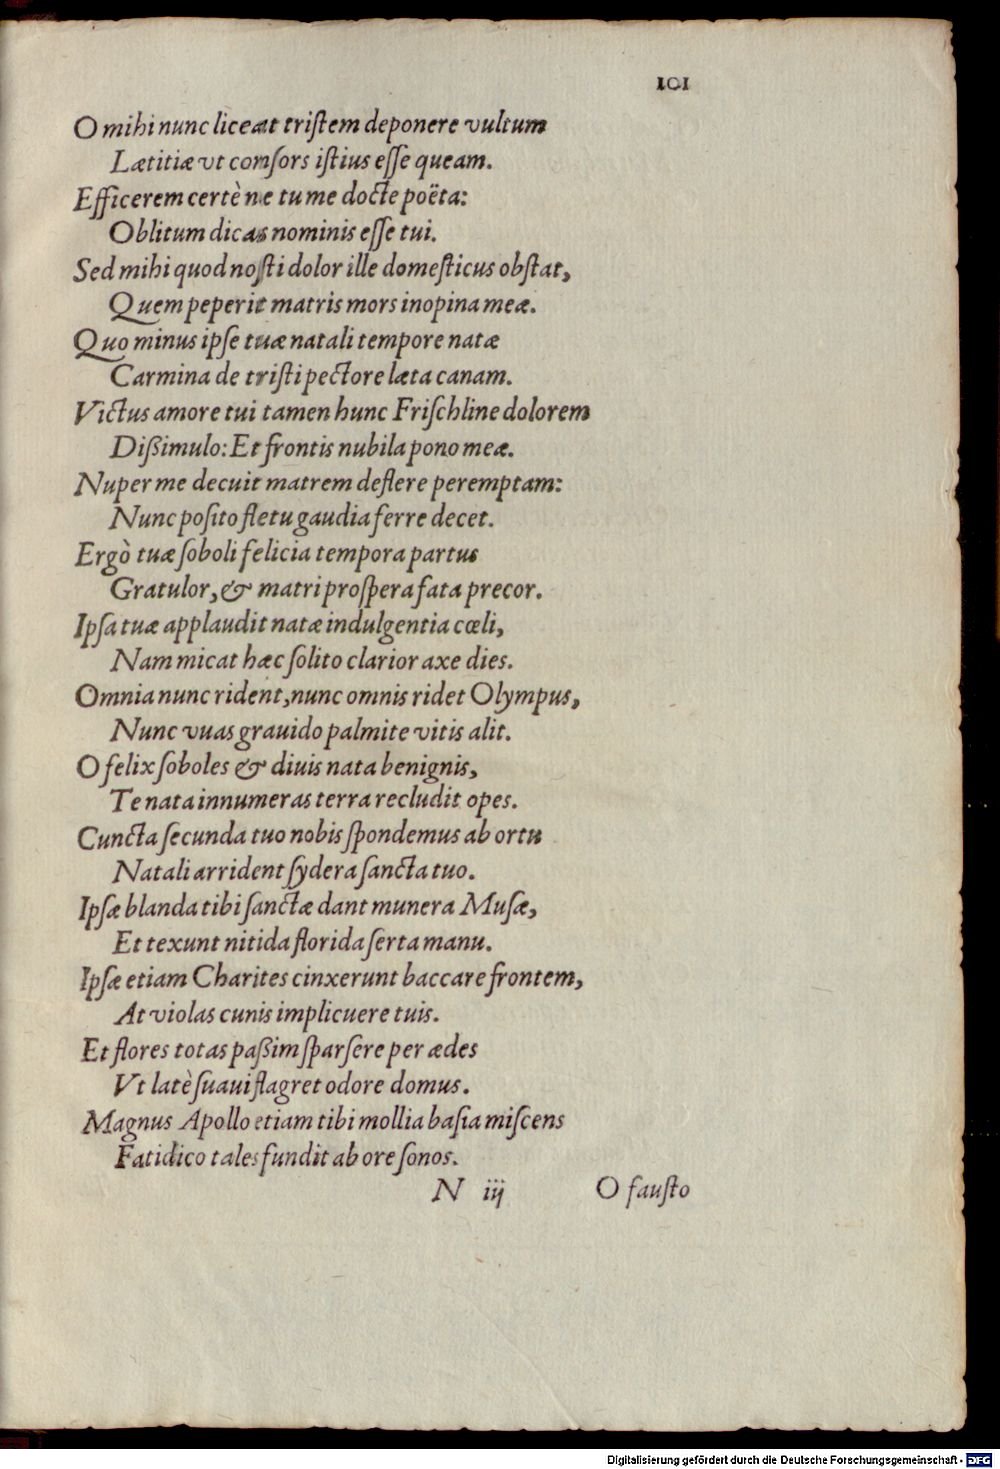 101
O mihi nunc liceat tristem deponere vultum
Lætitiæ vt consors istius esse queam.
Efficerem certè ne tu me docte poëta:
Oblitum dicas nominis esse tui.
Sed mihi quod nosti dolor ille domesticus obstat,
Quem peperit matris mors inopina meæ.
Quo minus ipse tuæ natali tempore natæ
Carmina de tristi pectore læta canam.
Victus amore tui tamen hunc Frischline dolorem
Dißimulo: Et frontis nubila pono meæ.
Nuper me decuit matrem deflere peremptam:
Nunc posito fletu gaudia ferre decet.
Ergò tuæ soboli felicia tempora partus
Gratulor, & matri prospera fata precor.
Ipsa tuæ applaudit natæ indulgentia cœli,
Nam micat hæc solito clarior axe dies.
Omnia nunc rident, nunc omnis ridet Olympus,
Nunc vuas grauido palmite vitis alit.
O felix soboles & diuis nata benignis,
Te nata innumeras terra recludit opes.
Cuncta secunda tuo nobis spondemus ab ortu
Natali arrident sydera sancta tuo.
Ipsæ blanda tibi sanctæ dant munera Musæ,
Et texunt nitida florida serta manu.
Ipsæ etiam Charites cinxerunt baccare frontem,
At violas cunis implicuere tuis.
Et flores totas paßim sparsere per ædes
Vt latè suaui flagret odore domus.
Magnus Apollo etiam tibi mollia basia miscens
Fatidico tales fundit ab ore sonos.
N iij O fausto
Digitalisierung gefördert durch die Deutsche Forschungsgemeinschaft - DFG